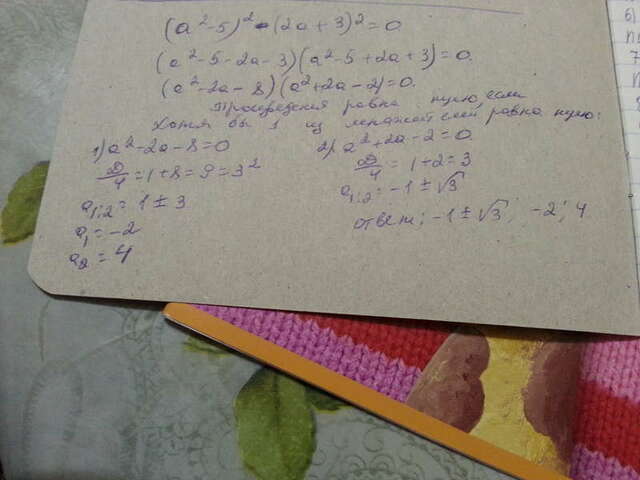 (a²-5)² - (2a+3)² = 0
(a²-5-2a-3)(a²-5+2a+3)=0.
(a²-2a-8)(a²+2a-2)=0.
Произведения равна нулю, если
хотя бы 1 из множителей равна нулю:
1) a²-2a-8=0
D/4 = 1+8=9=3²
a1;2 = 1 ± 3
a1 = -2
a2 = 4
2) a²+2a-2=0
D/4 = 1+2=3
a1;2 = -1 ± √3
ответ: -1 ± √3; -2; 4